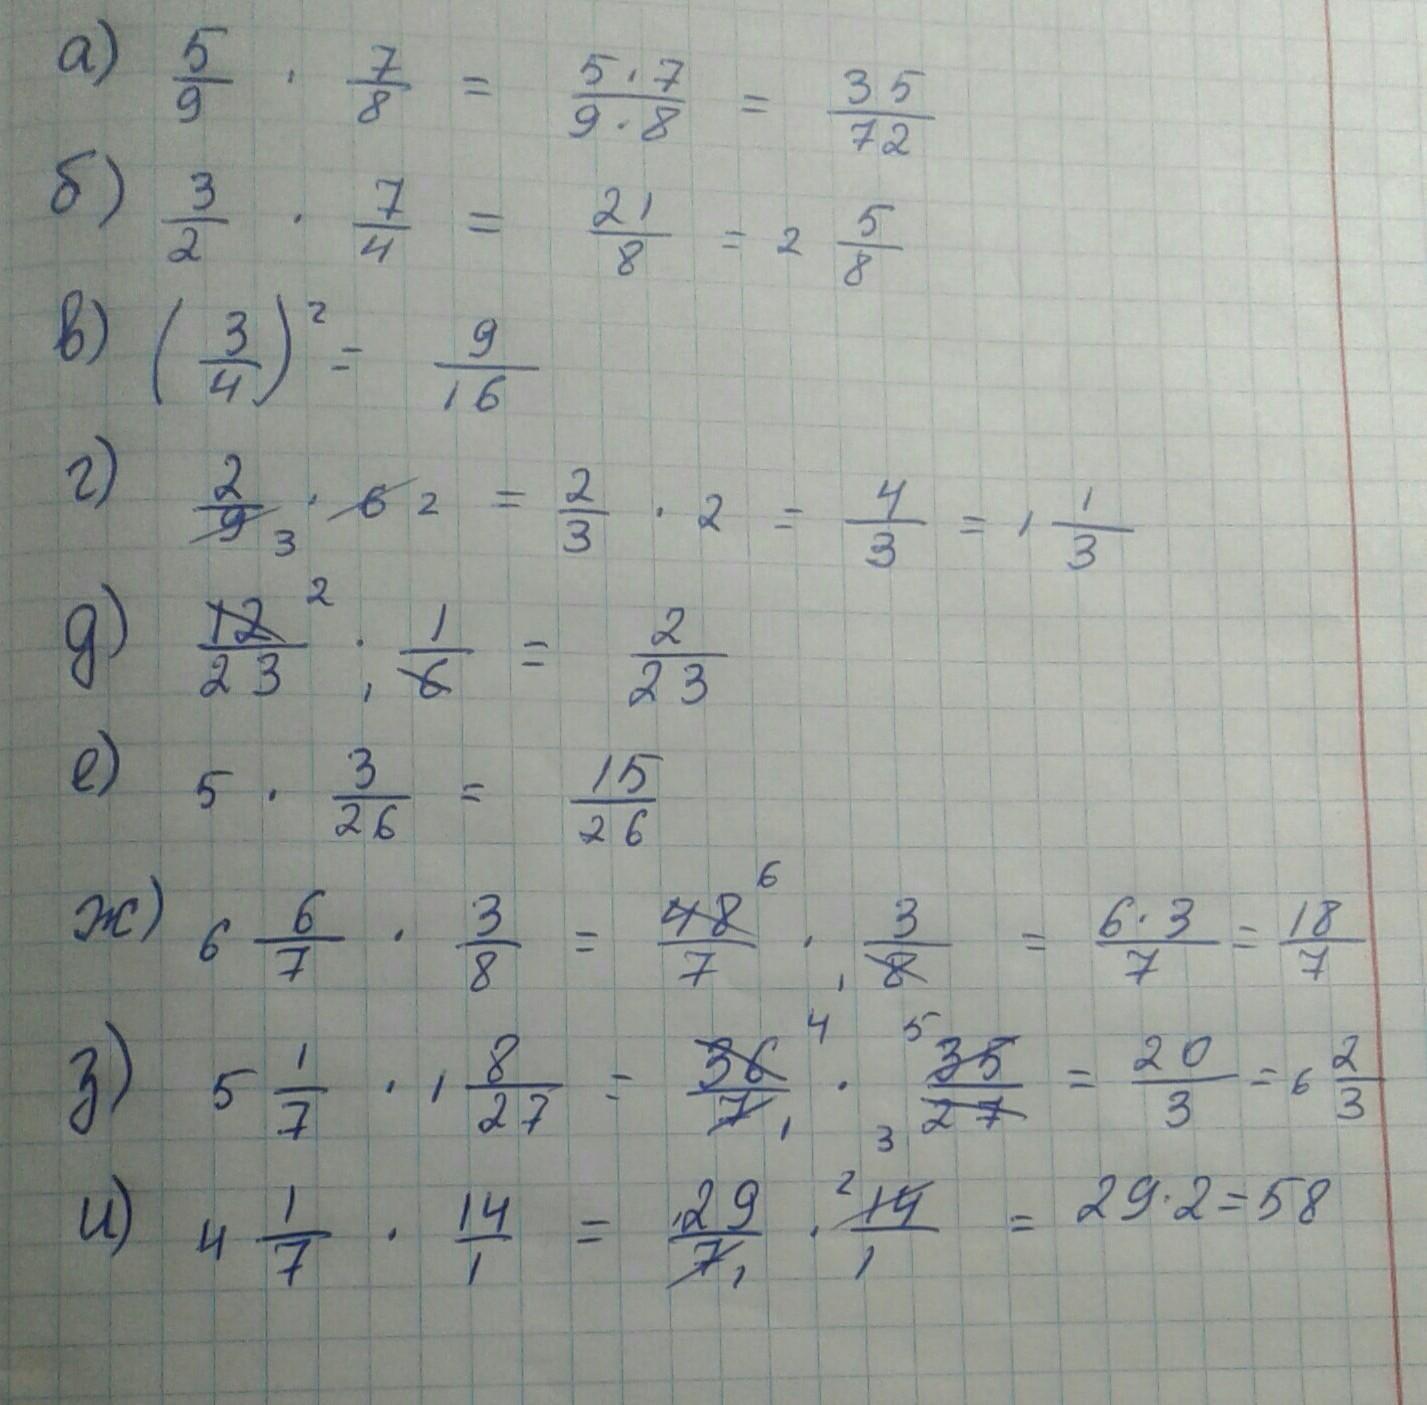 а) 5/9 · 7/8 = 5·7/9·8 = 35/72
б) 3/2 · 7/4 = 21/8 = 2 5/8
в) (3/4)² = 9/16
г) 2/9 3 · 6 2 = 2/3 · 2 = 4/3 = 1 1/3
д) 12 2/23 · 1/1 6 = 2/23
е) 5 · 3/26 = 15/26
ж) 6 6/7 · 3/8 = 48 6/7 · 3/1 8 = 6·3/7 = 18/7
з) 5 1/7 · 1 8/27 = 36 4/7 1 · 5 35/3 27 = 20/3 = 6 2/3
и) 4 1/7 · 14/1 = 29/7 1 · 2 14/1 = 29·2=58